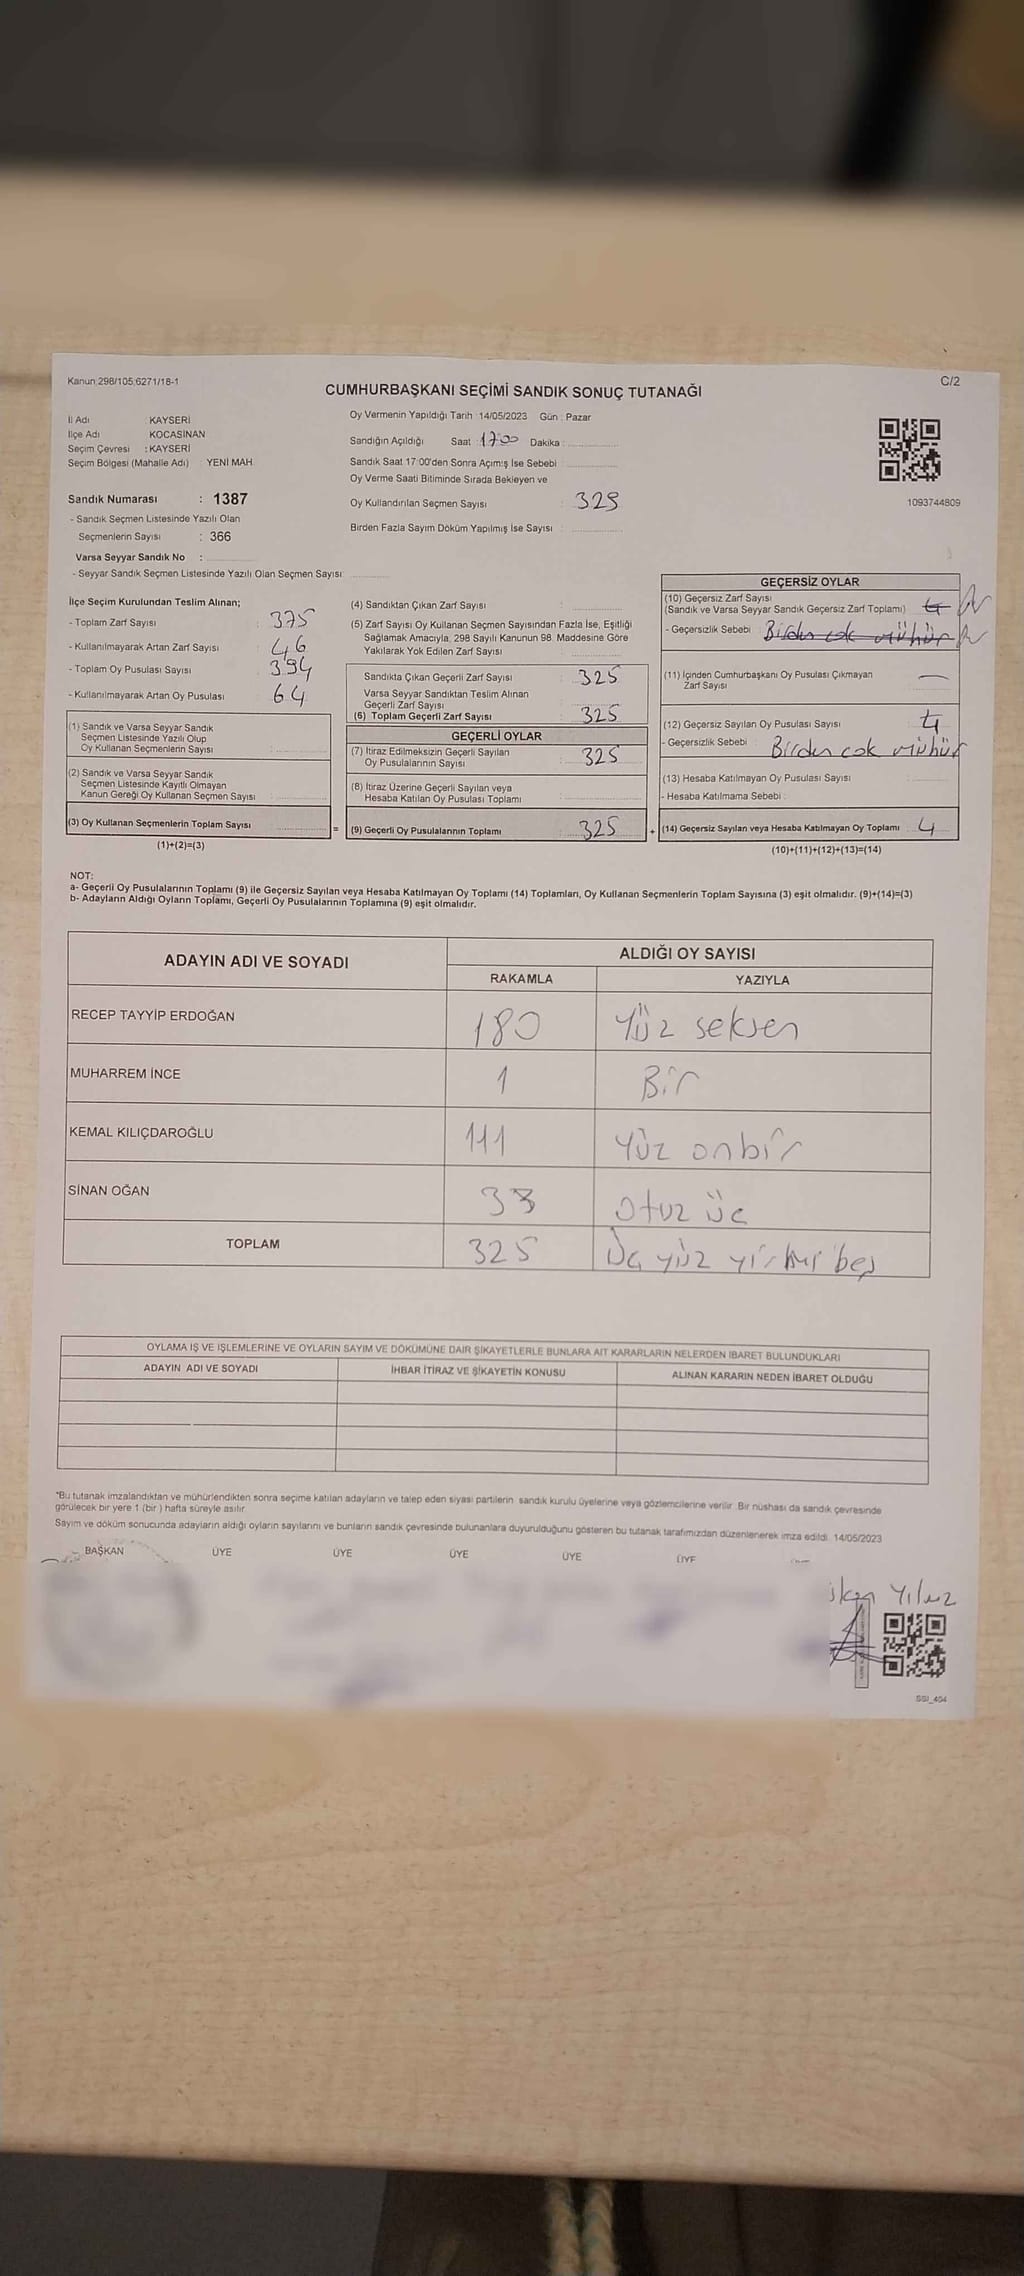 Kanun;298/105;6271/18-1
C/2
CUMHURBAŞKANI SEÇİMİ SANDIK SONUÇ TUTANAĞI
İl Adı KAYSERİ
İlçe Adı KOCASİNAN
Seçim Çevresi : KAYSERİ
Seçim Bölgesi (Mahalle Adı) : YENİ MAH
Sandık Numarası : 1387
- Sandık Seçmen Listesinde Yazılı Olan
Seçmenlerin Sayısı : 366
Varsa Seyyar Sandık No :
- Seyyar Sandık Seçmen Listesinde Yazılı Olan Seçmen Sayısı:
Oy Vermenin Yapıldığı Tarih :14/05/2023 Gün : Pazar
Sandığın Açıldığı Saat : 1700 Dakika :
Sandık Saat 17:00'den Sonra Açımış İse Sebebi :
Oy Verme Saati Bitiminde Sırada Bekleyen ve
Oy Kullandırılan Seçmen Sayısı : 329
Birden Fazla Sayım Döküm Yapılmış İse Sayısı :
1093744809
İlçe Seçim Kurulundan Teslim Alınan;
- Toplam Zarf Sayısı : 375
- Kullanılmayarak Artan Zarf Sayısı : 46
- Toplam Oy Pusulası Sayısı : 394
- Kullanılmayarak Artan Oy Pusulası : 64
(1) Sandık ve Varsa Seyyar Sandık
Seçmen Listesinde Yazılı Olup
Oy Kullanan Seçmenlerin Sayısı :
(2) Sandık ve Varsa Seyyar Sandık
Seçmen Listesinde Kayıtlı Olmayan
Kanun Gereği Oy Kullanan Seçmen Sayısı :
(3) Oy Kullanan Seçmenlerin Toplam Sayısı
=
(1)+(2)=(3)
(4) Sandıktan Çıkan Zarf Sayısı :
(5) Zarf Sayısı Oy Kullanan Seçmen Sayısından Fazla İse, Eşitliği
Sağlamak Amacıyla, 298 Sayılı Kanunun 98. Maddesine Göre
Yakılarak Yok Edilen Zarf Sayısı :
Sandıkta Çıkan Geçerli Zarf Sayısı : 325
Varsa Seyyar Sandıktan Teslim Alınan
Geçerli Zarf Sayısı :
(6) Toplam Geçerli Zarf Sayısı : 325
GEÇERLİ OYLAR
(7) İtiraz Edilmeksizin Geçerli Sayılan
Oy Pusulalarının Sayısı : 325
(8) İtiraz Üzerine Geçerli Sayılan veya
Hesaba Katılan Oy Pusulası Toplamı :
(9) Geçerli Oy Pusulalarının Toplamı : 325
+
GEÇERSİZ OYLAR
(10) Geçersiz Zarf Sayısı
(Sandık ve Varsa Seyyar Sandık Geçersiz Zarf Toplamı) : 4
- Geçersizlik Sebebi : Birden cok mühür
(11) İçinden Cumhurbaşkanı Oy Pusulası Çıkmayan
Zarf Sayısı : —
(12) Geçersiz Sayılan Oy Pusulası Sayısı : 4
- Geçersizlik Sebebi : Birden cok mühür
(13) Hesaba Katılmayan Oy Pusulası Sayısı :
- Hesaba Katılmama Sebebi :
(14) Geçersiz Sayılan veya Hesaba Katılmayan Oy Toplamı : 4
(10)+(11)+(12)+(13)=(14)
NOT:
a- Geçerli Oy Pusulalarının Toplamı (9) ile Geçersiz Sayılan veya Hesaba Katılmayan Oy Toplamı (14) Toplamları, Oy Kullanan Seçmenlerin Toplam Sayısına (3) eşit olmalıdır. (9)+(14)=(3)
b- Adayların Aldığı Oyların Toplamı, Geçerli Oy Pusulalarının Toplamına (9) eşit olmalıdır.
ADAYIN ADI VE SOYADI
ALDIĞI OY SAYISI
RAKAMLA YAZIYLA
RECEP TAYYİP ERDOĞAN 180 Yüz seksen
MUHARREM İNCE 1 Bir
KEMAL KILIÇDAROĞLU 111 Yüz onbir
SİNAN OĞAN 33 Otuz üc
TOPLAM 325 Üç yüz yirmi beş
OYLAMA İŞ VE İŞLEMLERİNE VE OYLARIN SAYIM VE DÖKÜMÜNE DAİR ŞİKAYETLERLE BUNLARA AİT KARARLARIN NELERDEN İBARET BULUNDUKLARI
ADAYIN ADI VE SOYADI İHBAR İTİRAZ VE ŞİKAYETİN KONUSU ALINAN KARARIN NEDEN İBARET OLDUĞU
*Bu tutanak imzalandıktan ve mühürlendikten sonra seçime katılan adayların ve talep eden siyasi partilerin sandık kurulu üyelerine veya gözlemcilerine verilir. Bir nüshası da sandık çevresinde
görülecek bir yere 1 (bir ) hafta süreyle asılır.
Sayım ve döküm sonucunda adayların aldığı oyların sayılarını ve bunların sandık çevresinde bulunanlara duyurulduğunu gösteren bu tutanak tarafımızdan düzenlenerek imza edildi. 14/05/2023
BAŞKAN ÜYE ÜYE ÜYE ÜYE ÜYE
Yılmaz
SSI_404